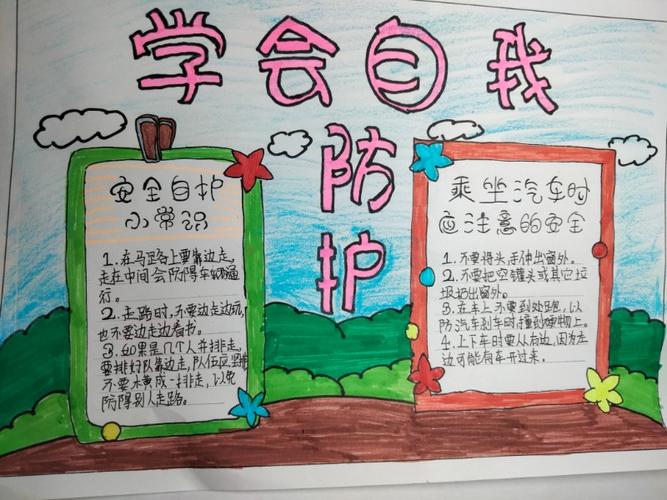 学会自我
防护
安全自护
小常识
1.在马路上要靠边走,
走在中间会防得车辆通
行。
2.走路时,不要边走边玩,
也不要边走边看书。
3.如果是几个人并排走,
要排好队靠边走,队伍应竖
不要水黄成一排走,以免
防得别人走路。
乘坐汽车时
应注意的安全
1.不要将头、手伸出窗外。
2.不要把空罐头或其它垃
圾扔出窗外。
3.在车上不要到处跑,以
防汽车刹车时撞到硬物上。
4.上下车时要从右边,因为左
边可能有车开过来。